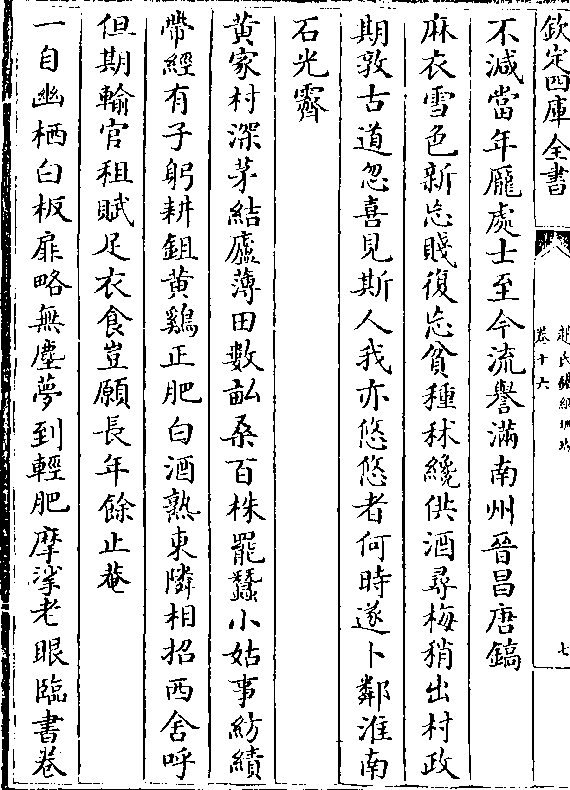 欽定四庫全書
趙氏鐵網珊瑚
卷十六
七
不減當年龎處士至今流譽滿南州晉昌唐鎬
麻衣雪色新忘賤復忘貧種秫纔供酒尋梅稍出村政
期敦古道忽喜見斯人我亦悠悠者何時遂卜鄰淮南
石光霽
黄家村深茅結廬薄田數畝桑百株罷蠶小姑事紡績
帶經有子躬耕鉏黄鷄正肥白酒熟東隣相招西舍呼
但期輸官租賦足衣食豈願長年餘止菴
一自幽栖白板扉略無塵夢到輕肥摩挲老眼臨書卷